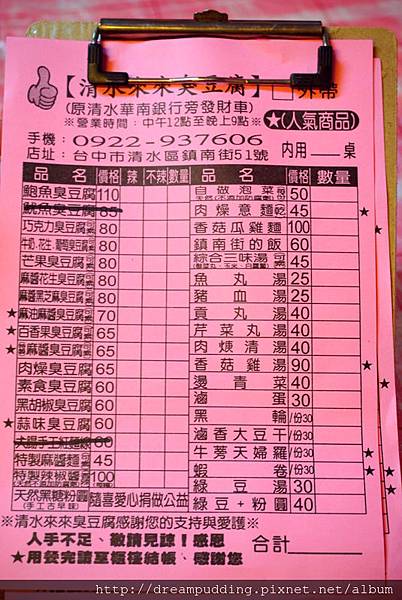 【清水來來臭豆腐】
□外帶
(原清水華南銀行旁發財車)
※營業時間：中午12點至晚上9點※
★(人氣商品)
手機：0922-937606
店址：台中市清水區鎮南街51號
內用___桌
品名 價格 辣 不辣 數量
鮑魚臭豆腐 110
魷魚臭豆腐 85
巧克力臭豆腐 80
芒果臭豆腐 80
麻醬花生臭豆腐 80
麻醬黑芝麻臭豆腐 80
★麻油麻醬臭豆腐 70
★百香果臭豆腐 65
麻醬臭豆腐 65
肉燥臭豆腐 65
素食臭豆腐 60
黑胡椒臭豆腐 60
★蒜味臭豆腐 60
大腸手工紅麵線 60
特製麻醬麵 45
特製辣椒醬 100
天然黑糖粉圓 隨喜愛心捐做公益
(手工古早味)
品名 價格 數量
自做泡菜 50
肉燥意麵 45 ★
香菇瓜雞麵 100
鎮南街的飯 60
綜合三味湯 45
魚丸湯 25
豬血湯 25
貢丸湯 40
芹菜丸湯 40
肉焿清湯 40
香菇雞湯 90 ★
燙青菜 40
滷蛋 30
黑輪 /份30
滷香大豆干 /份30
牛蒡天婦羅 /份30 ★
蝦卷 /份30 ★
綠豆湯 30
綠豆+粉圓 40
※清水來來臭豆腐感謝您的支持與愛護※
人手不足、敬請見諒！感恩
★用餐完請至櫃檯結帳、感謝您
合計____
http://dreampudding.pixnet.net/album